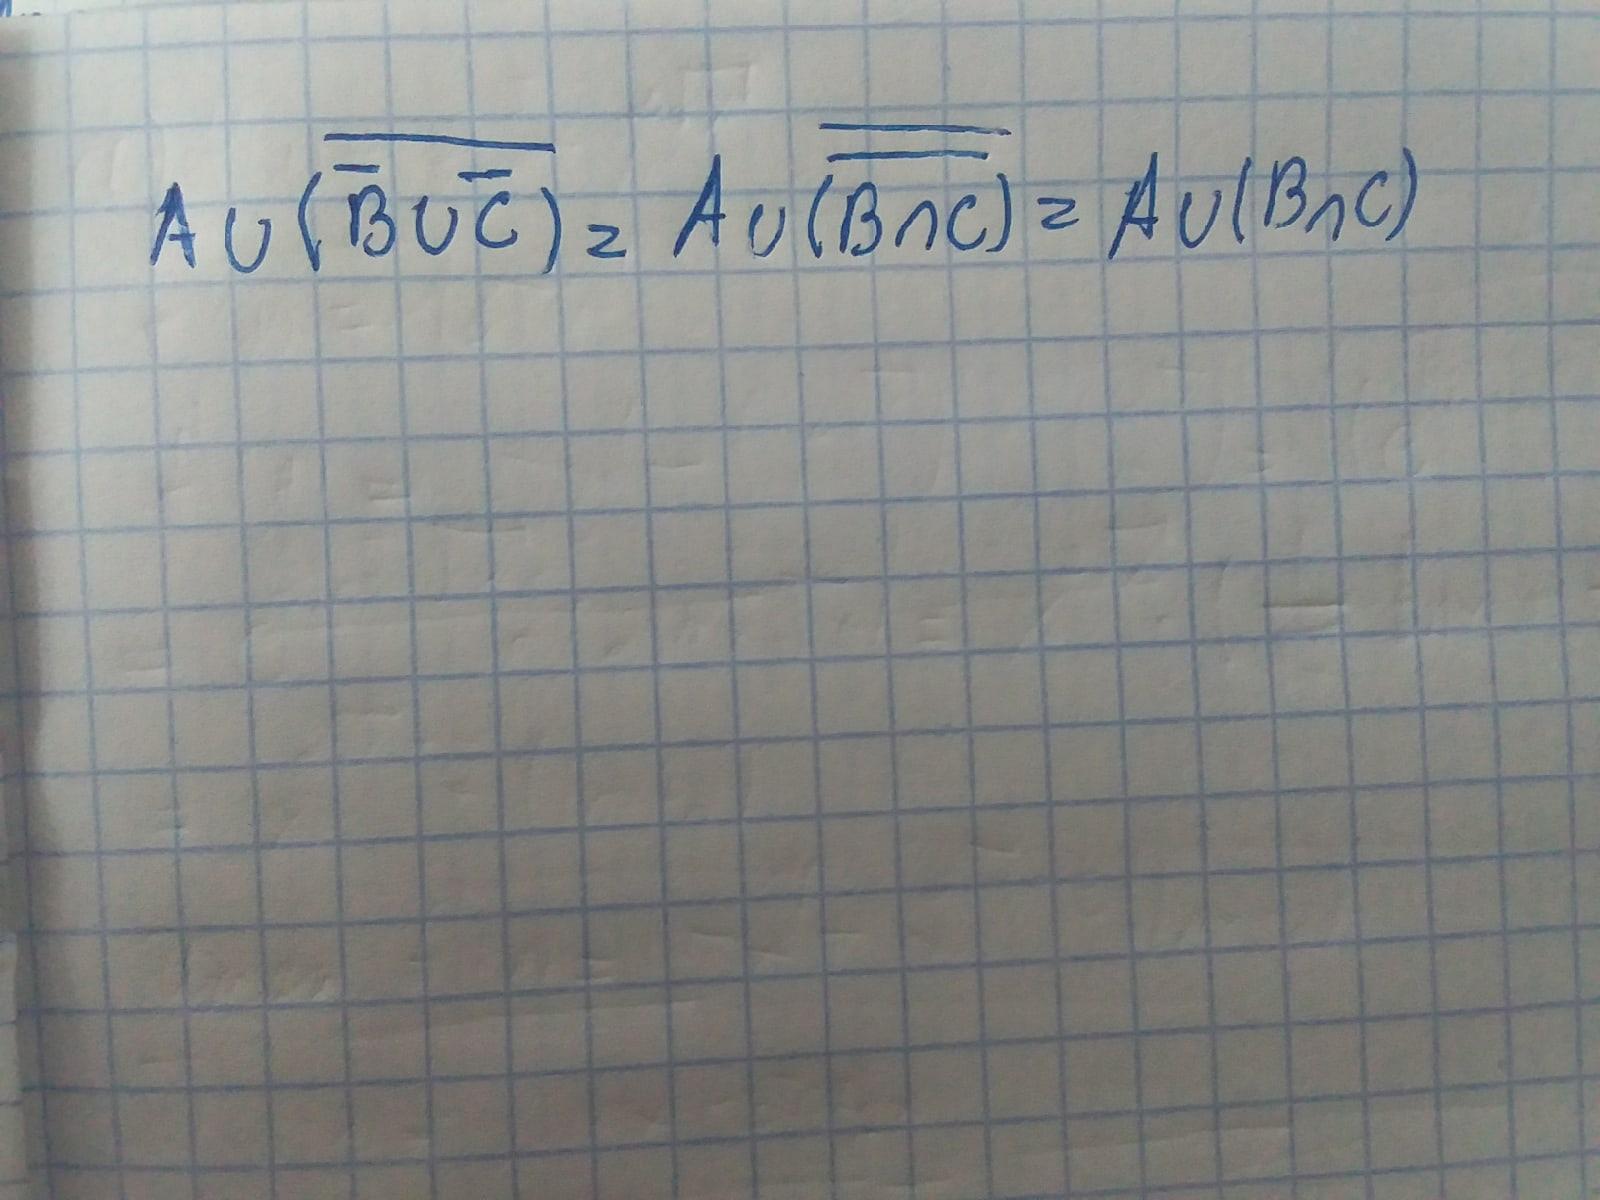 A ∪ (B̅ ∪ C̅)̅ = A ∪ (B ∩ C)̿ = A ∪ (B ∩ C)